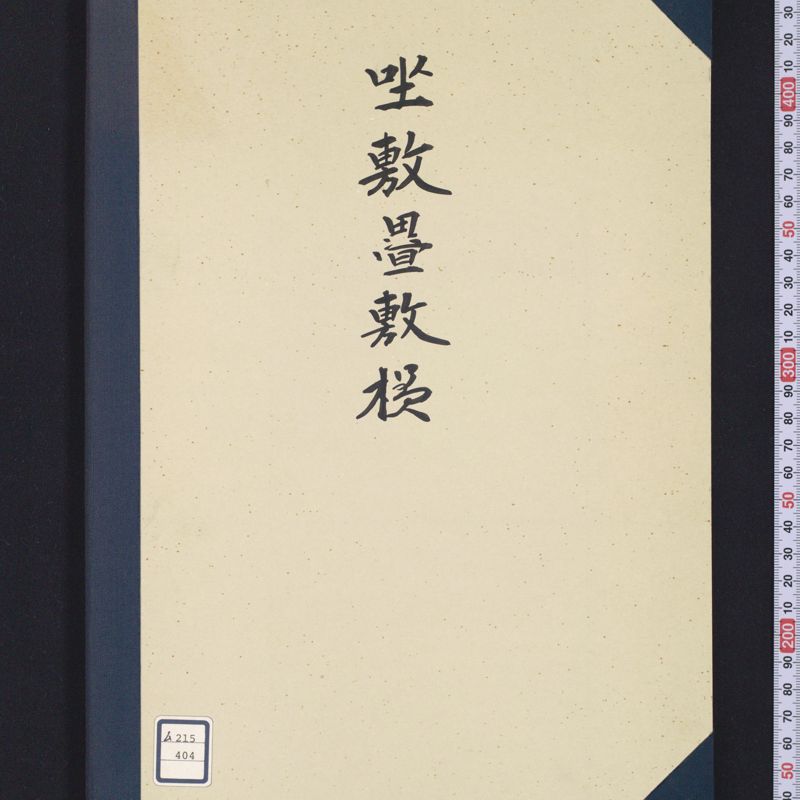 坐敷疊敷様
ム215
404
30
10
400
90
80
70
60
50
40
30
20
10
300
90
80
70
60
50
40
30
20
10
200
90
80
70
60
50
40